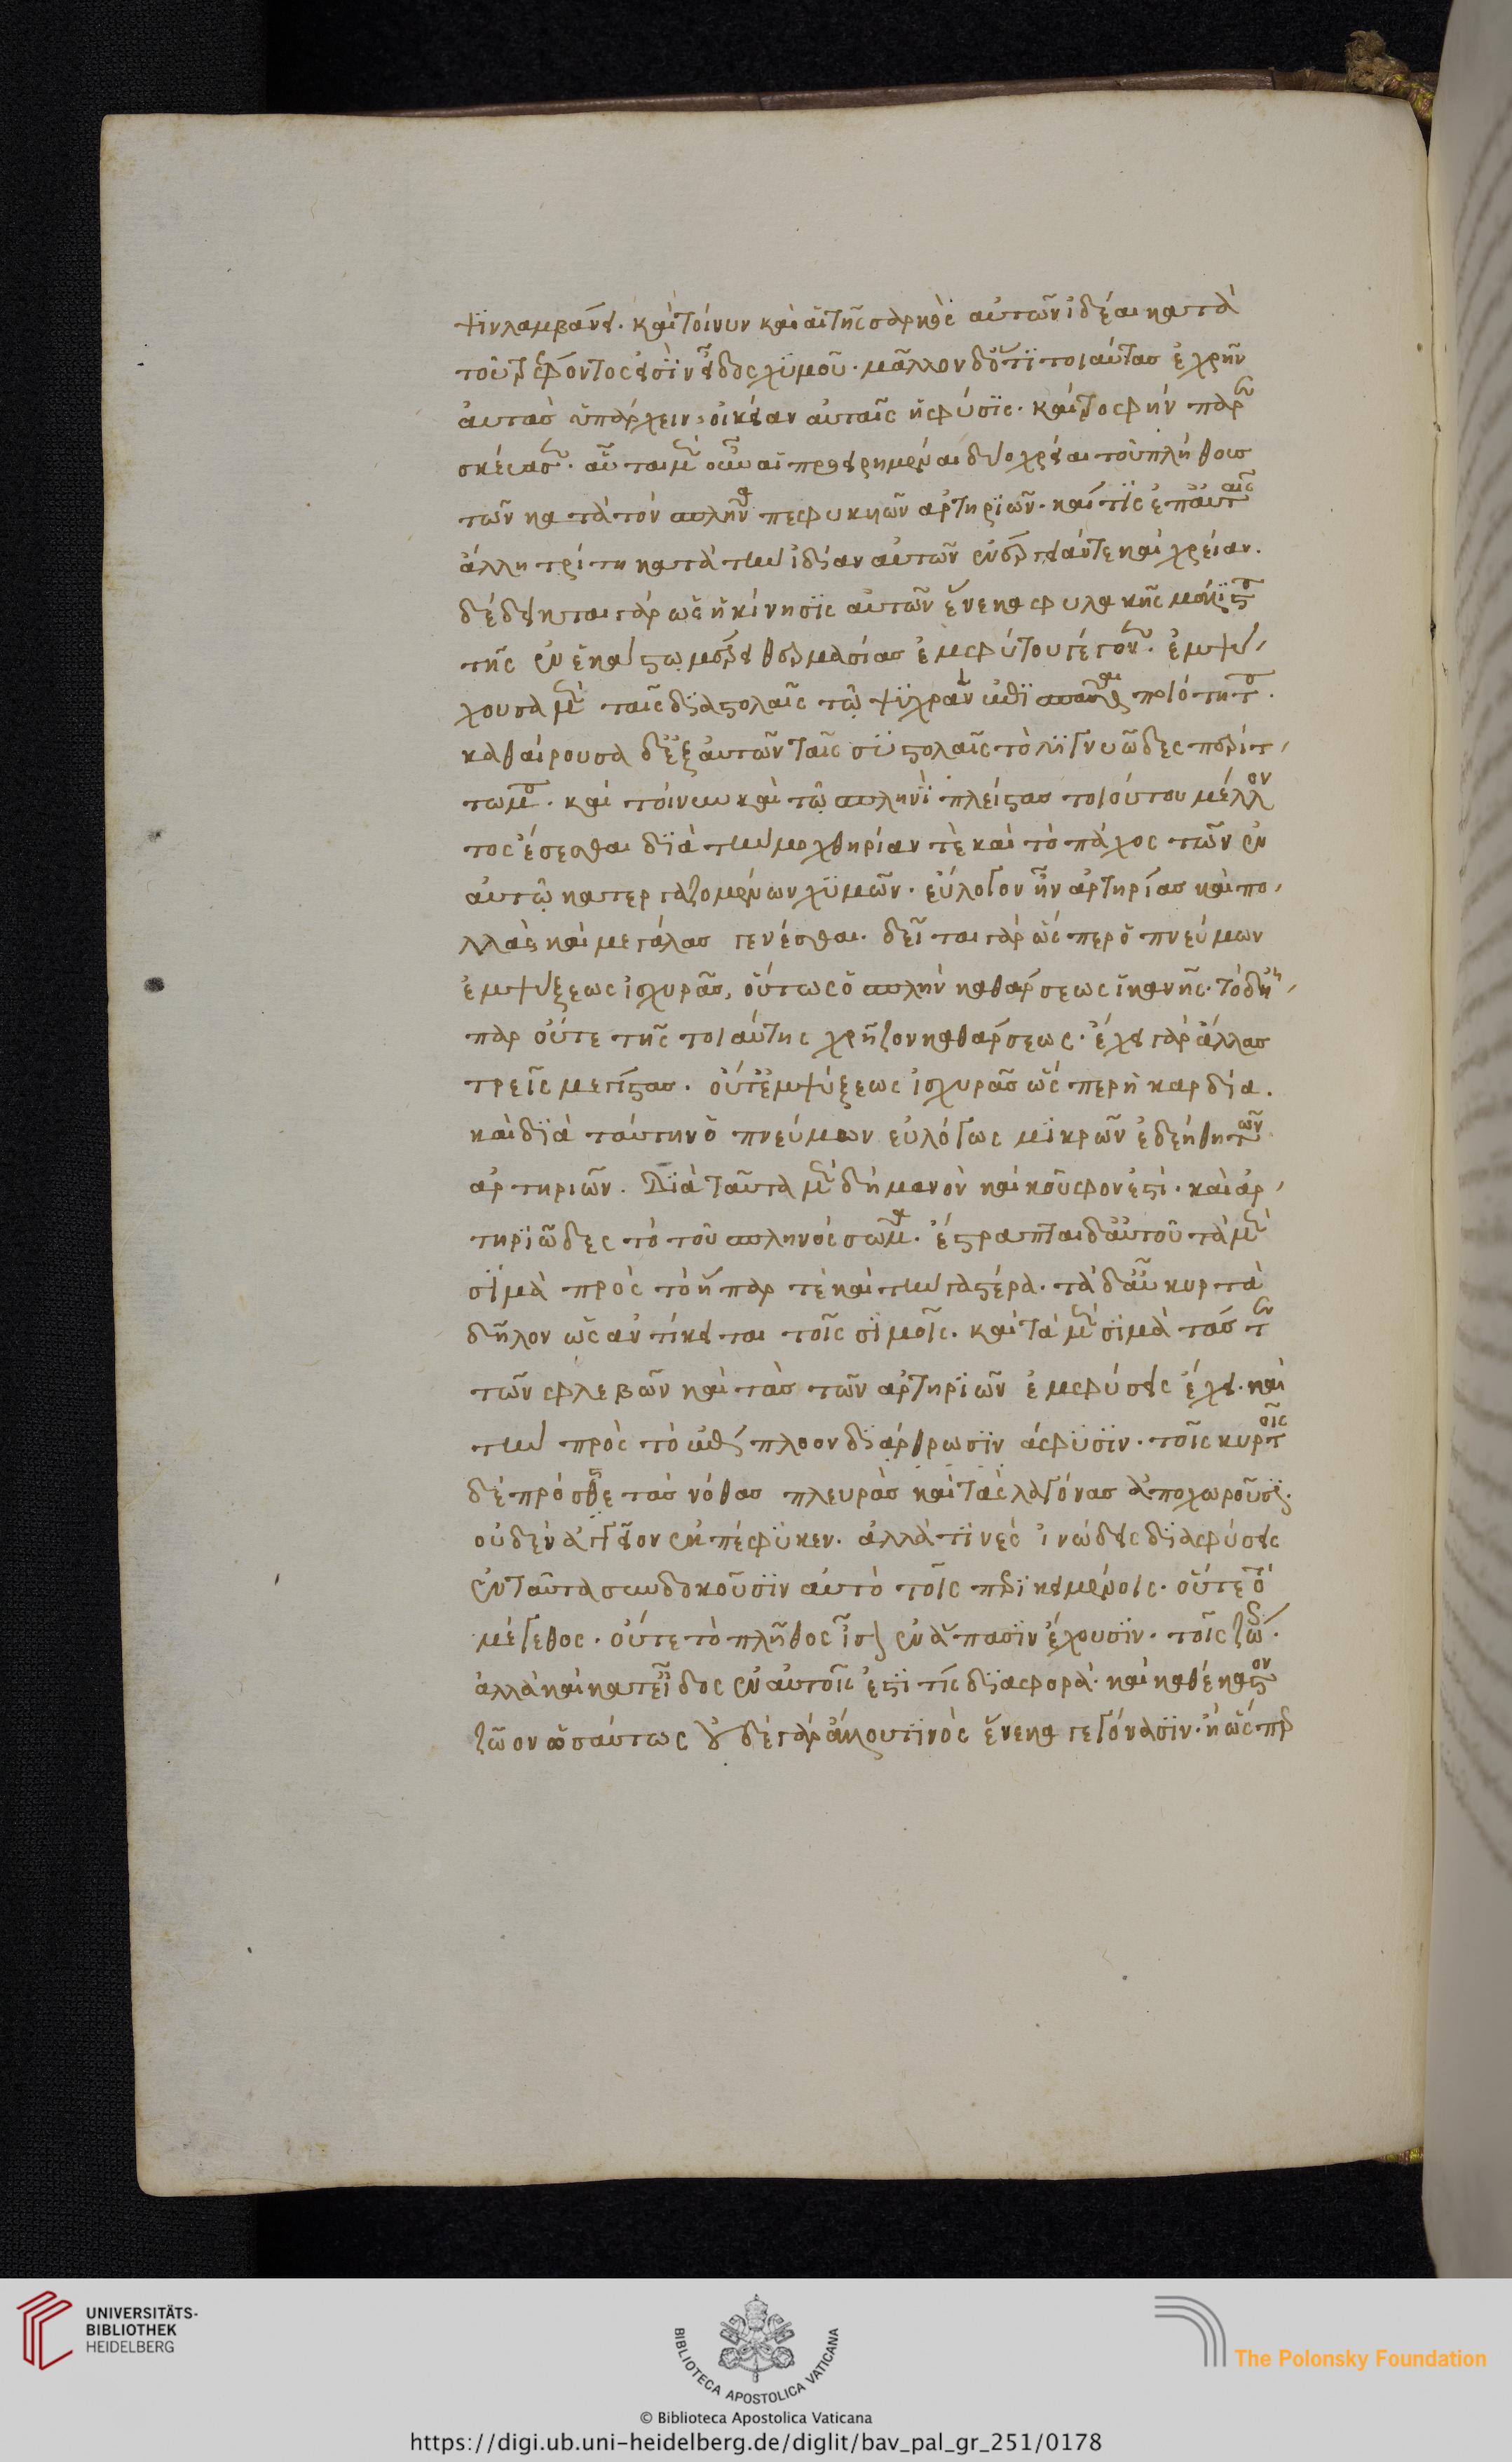 ψιν λαμβάνει. καὶ τοίνυν καὶ αἱ τῆς σαρκὸς αὐτῶν ἰδέαι κατὰ
τὸ τρέφοντός εἰσιν εἶδος χυμοῦ. μᾶλλον δ' ὅτι τοιαύτας ἐχρῆν
αὐτὰς ὑπάρχειν, οἰκείαν αὐταῖς ἡ φύσις καὶ τροφὴν παρε
σκεύασεν. αὗται μὲν οὖν αἱ προειρημέναι δύο χρεῖαι τοῦ πλήθους
τῶν κατὰ τὸν σπλῆνα πεφυκυιῶν ἀρτηριῶν. καί τις ἐπ' αὐταῖς
ἄλλη τρίτη κατὰ τὴν ἰδίαν αὐτῶν ἐνέργειάν τε καὶ χρείαν.
δέδεικται γὰρ ὡς ἡ κίνησις αὐτῶν ἕνεκα φυλακῆς μάλιστα
τῆς ἐν ἑκάστῳ μορίῳ θερμασίας ἐμφύτου γέγονεν. ἐμψύ
χουσα μὲν ταῖς διαστολαῖς τῷ ψυχρὰν ἐπισπᾶσθαι ποιότητα.
καθαίρουσα δ' ἐξ αὐτῶν ταῖς συστολαῖς τὸ λιγνυῶδες περίτ
τωμα. καὶ τοίνυν καὶ τῷ σπληνὶ πλείστου τοιούτου μέλλον
τος ἔσεσθαι διὰ τὴν μοχθηρίαν τε καὶ τὸ πάχος τῶν ἐν
αὐτῷ κατεργαζομένων χυμῶν. εὔλογον ἦν ἀρτηρίας καὶ πο
λλὰς καὶ μεγάλας γενέσθαι. δεῖται γὰρ ὥσπερ ὁ πνεύμων
ἐμψύξεως ἰσχυρᾶς, οὕτως ὁ σπλὴν καθάρσεως ἱκανῆς. τὸ δ' ἧ
παρ οὔτε τῆς τοιαύτης χρῇζον καθάρσεως. ἔχει γὰρ ἄλλας
τρεῖς μεγίστας. οὔτ' ἐμψύξεως ἰσχυρᾶς ὥσπερ ἡ καρδία.
καὶ διὰ ταύτην ὁ πνεύμων εὐλόγως μικρῶν ἐδεήθη τῶν
ἀρτηριῶν. Διὰ ταῦτα μὲν δὴ μανὸν καὶ κοῦφόν ἐστι. καὶ ἀρ
τηριῶδες τὸ τοῦ σπληνὸς σῶμα. ἔστραπται δ' αὐτοῦ τὰ μὲν
σιμὰ πρὸς τὸ ἧπαρ τε καὶ τὴν γαστέρα. τὰ δ' αὖ κυρτὰ
δῆλον ὡς ἀντίκειται τοῖς σιμοῖς. καὶ τὰ μὲν σιμὰ τάς τε
τῶν φλεβῶν καὶ τὰς τῶν ἀρτηριῶν ἐμφύσεις ἔχει. καὶ
τὴν πρὸς τὸ ἐπίπλοον διάρθρωσιν ἀσφυσιν. τοῖς κυρτοῖς
δὲ πρόσθε τὰς νόθας πλευρὰς καὶ τὰς λαγόνας ἀποχωροῦσι.
οὐδὲν ἀγγεῖον ἐμπέφυκεν. ἀλλά τινες ἰνώδεις διαφύσεις
ἐνταῦθα συνδοκοῦσιν αὐτὸ τοῖς περικειμένοις. οὔτε τὸ
μέγεθος. οὔτε τὸ πλῆθος ἴσαι ἐν ἅπασιν ἔχουσιν. τοῖς ζώοις.
ἀλλὰ καὶ κατ' εἶδος ἐν αὐτοῖς ἐστί τις διαφορά. καὶ καθ' ἕκαστον
ζῶον ὡσαύτως οὐδὲ γὰρ ἄλλου τινὸς ἕνεκα γεγόνασιν. ἢ ὥσπερ
UNIVERSITÄTS-
BIBLIOTHEK
HEIDELBERG
BIBLIOTECA APOSTOLICA VATICANA
The Polonsky Foundation
© Biblioteca Apostolica Vaticana
https://digi.ub.uni-heidelberg.de/diglit/bav_pal_gr_251/0178